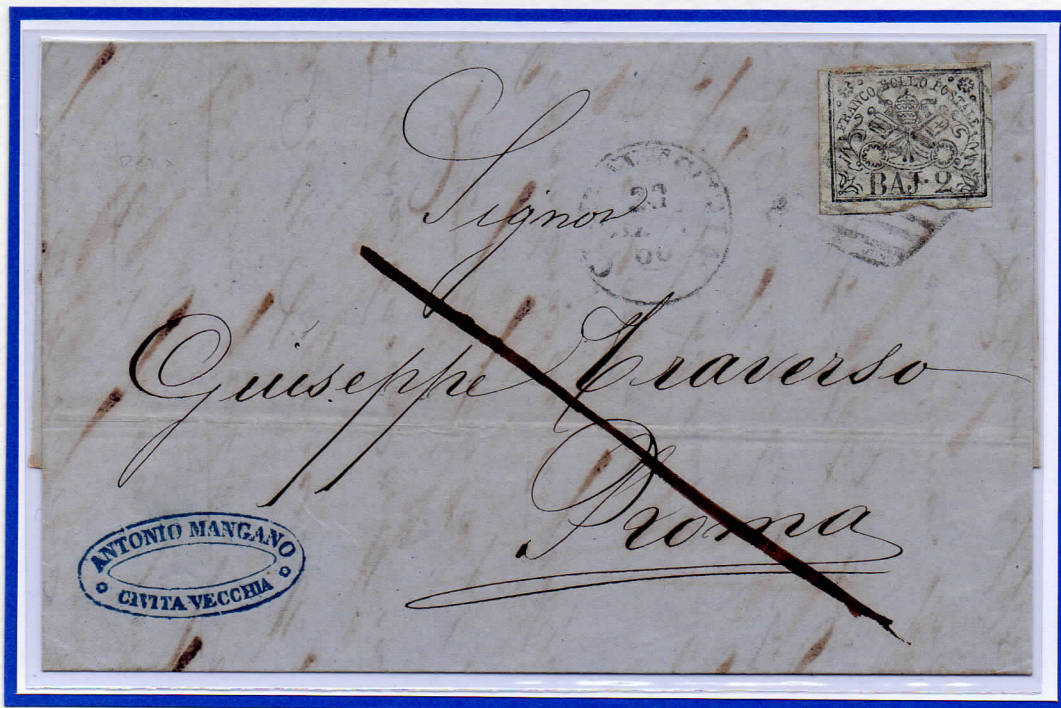 FRANCO BOLLO POSTALE
BAJ. 2
23
60
Signor
Giuseppe Traverso
Roma
ANTONIO MANGANO
CIVITA VECCHIA